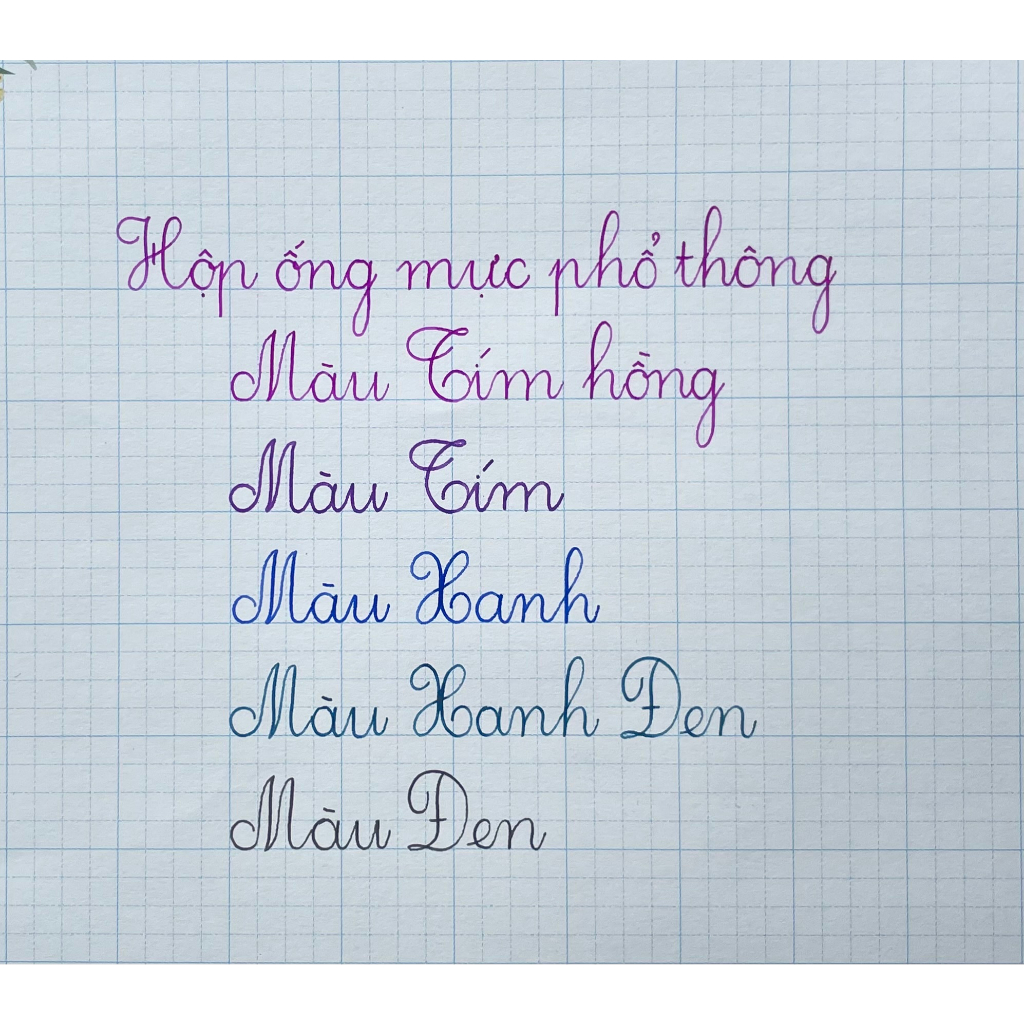 Hộp ống mực phổ thông
Màu Tím hồng
Màu Tím
Màu Xanh
Màu Xanh Đen
Màu Đen